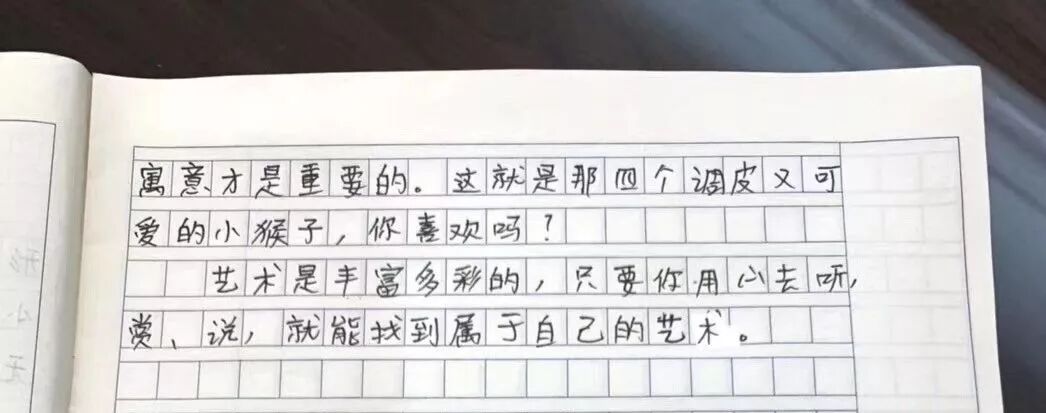 寓意才是重要的。这就是那四个调皮又可
爱的小猴子，你喜欢吗？
艺术是丰富多彩的，只要你用心去听，
赏、说，就能找到属于自己的艺术。